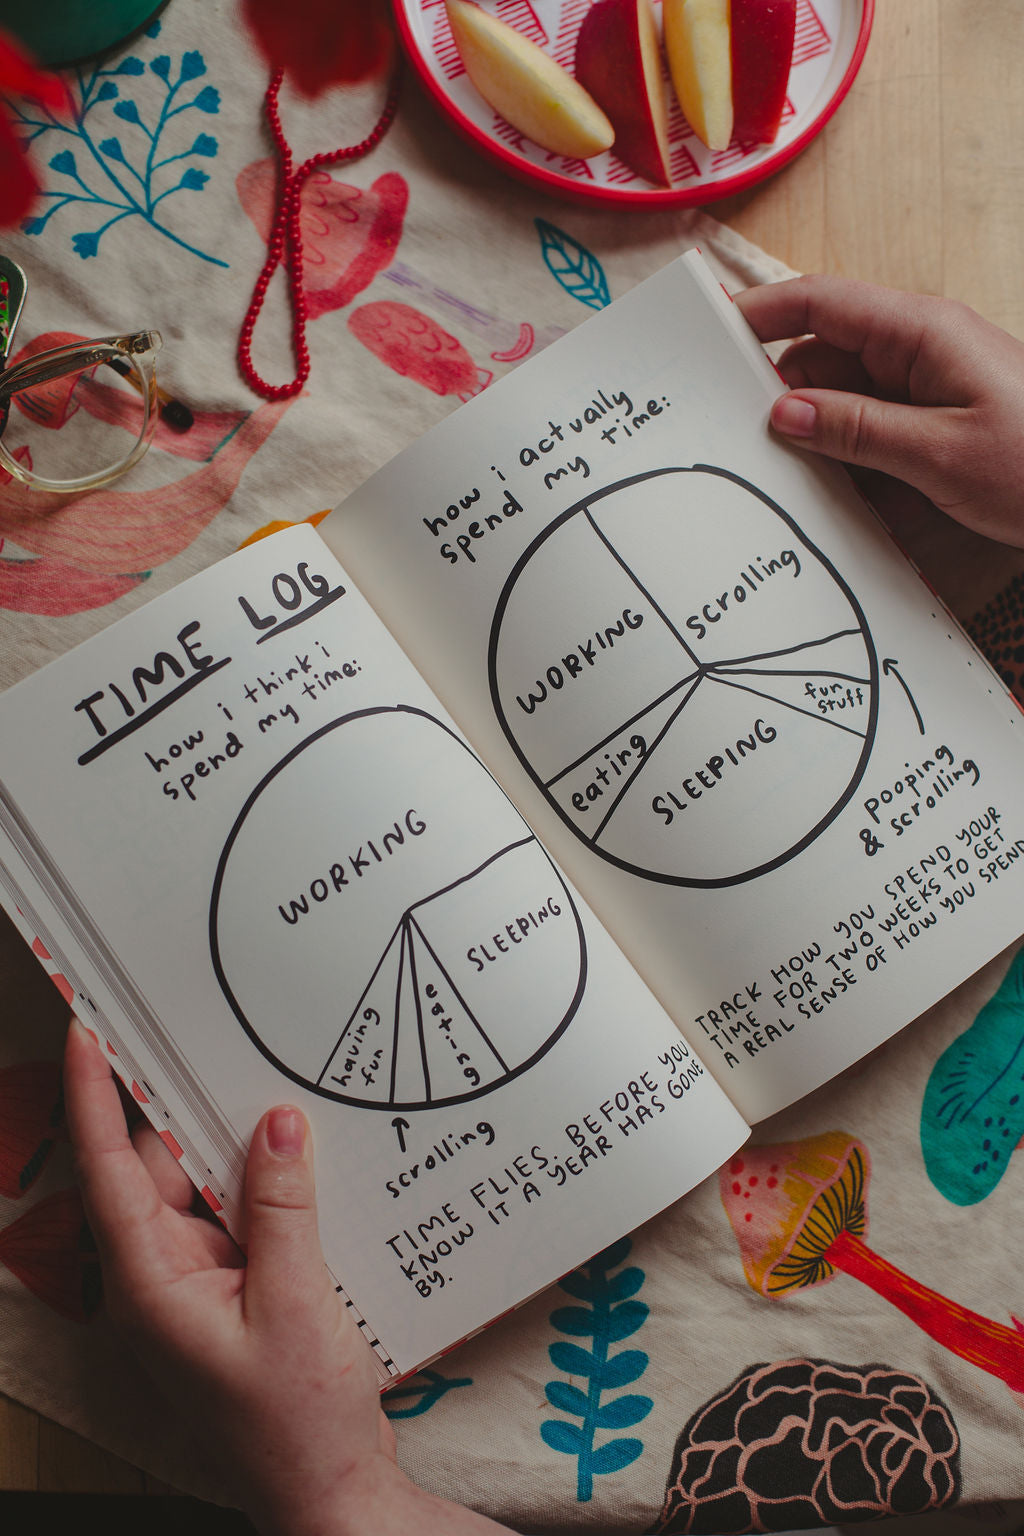 TIME LOG
how i think i
spend my time:
WORKING
SLEEPING
eating
having
fun
scrolling
TIME FLIES. BEFORE YOU
KNOW IT A YEAR HAS GONE
BY.
how i actually
spend my time:
WORKING
scrolling
fun
stuff
SLEEPING
eating
pooping
& scrolling
TRACK HOW YOU SPEND YOUR
TIME FOR TWO WEEKS TO GET
A REAL SENSE OF HOW YOU SPEND